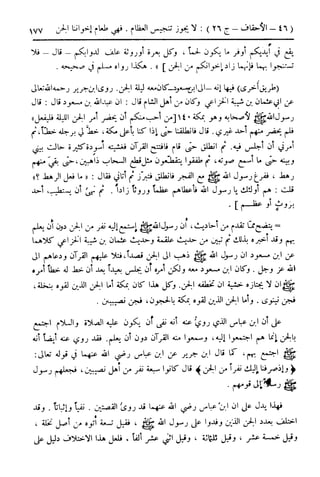 (٤٦ – الأحقاف – ج ٢٦) : لا يجوز تنجيس العظام . فهي طعام إخواننا الجن ١٧٧
يقع في أيديكم أوفر ما يكون لحماً ، وكل بعرة أو روثة علف لدوابكم – قال – فلا
تستنجوا بهما فإنهما زاد إخوانكم من الجن ] » . هكذا رواه مسلم في صحيحه .
(طريق أخرى) فيها إنه – أي ابن مسعود – كان معه ليلة الجن . روى ابن جرير رحمه الله تعالى
عن أبي عثمان بن شيبة الخزاعي وكان من أهل الشام قال : ان عبد الله بن مسعود قال : قال
رسول الله ﷺ لأصحابه وهو بمكة [من أحب منكم أن يحضر أمر الجن الليلة فليفعل»
فلم يحضر منهم أحد غيري . قال فانطلقنا حتى إذا كنا بأعلى مكة، خط لي برجله خطاً ، ثم
أمرني أن أجلس فيه . ثم انطلق حتى قام فافتتح القرآن فغشيته أسودة كثيرة حالت بيني
وبينه حتى ما أسمع صوته ، ثم طفقوا يتقطعون مثل قطع السحاب ذاهبين، حتى بقي منهم
رهط ، ففرغ رسول الله ﷺ مع الفجر فانطلق فتبرز ثم أتاني فقال : «ما فعل الرهط ؟»
قلت : هم أولئك يا رسول الله فأعطاهم عظماً وروثاً زاداً . ثم نهى أن يستطيب أحد
بروث أو عظم ] .
= يتضح مما تقدم من أحاديث، أن رسول الله ﷺ إستمع إليه نفر من الجن دون أن يعلم
بهم وقد أخبره بذلك ثم تبين من حديث علقمة وحديث عثمان بن شيبة الخزاعي كلاهما
عن ابن مسعود ان رسول الله ﷺ ذهب الى الجن قصداً، فتلا عليهم القرآن ودعاهم الى
الله عز وجل . وكان ابن مسعود معه ولكن أمره أن يجلس بعيداً بعد أن خط له خطاً أمره
ان لا يجتازه خشية ان تخطفه الجن. وكل هذا كان بمكة أما الجن الذين لقوه بنخلة ،
فجن نينوى . وأما الجن الذين لقوه بمكة بالحجون، فجن نصيبين .
على أن ابن عباس الذي روي عنه أنه نفى أن يكون عليه الصلاة والسلام اجتمع
بالجن إنما هم اجتمعوا إليه، وسمعوا منه القرآن دون أن يعلم. فقد روي عنه أيضاً أنه
اجتمع بهم، كما قال ابن جرير عن ابن عباس رضي الله عنهما في قوله تعالى:
﴿وإذ صرفنا إليك نفراً من الجن﴾ قال كانوا سبعة نفر من أهل نصيبين، فجعلهم رسول
الى قومهم .
فهذا يدل على ان ابن عباس رضي الله عنهما قد روى القصتين . نفياً وإثباتاً . وقد
اختلف بعدد الجن الذين وفدوا على رسول الله ﷺ ، فقيل تسعة أتوه من أصل نخلة ،
وقيل خمسة عشر ، وقيل ثلاثمائة ، وقيل اثني عشر ألفاً . فلعل هذا الاختلاف دليل على